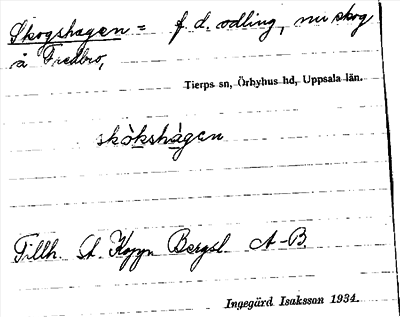 Skogshagen = f. d. odling, nu skog
å Fredbro,
Tierps sn, Örbyhus hd, Uppsala län.
skòkshàgen
Tillh. St. Bergsl. A-B
Ingegärd Isaksson 1934.